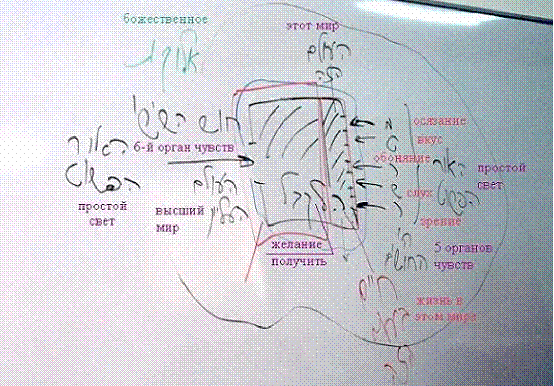 божественное
этот мир
העולם
הזה
חוש הששי
6-й орган чувств
האור
הפשוט
простой
свет
העולם
העליון
высший
мир
לקבל
желание
получить
осязание
вкус
обоняние
слух
зрение
האור
הפשוט
простой
свет
ה'
החושים
5 органов
чувств
חיים
жизнь в
этом мире
הזה